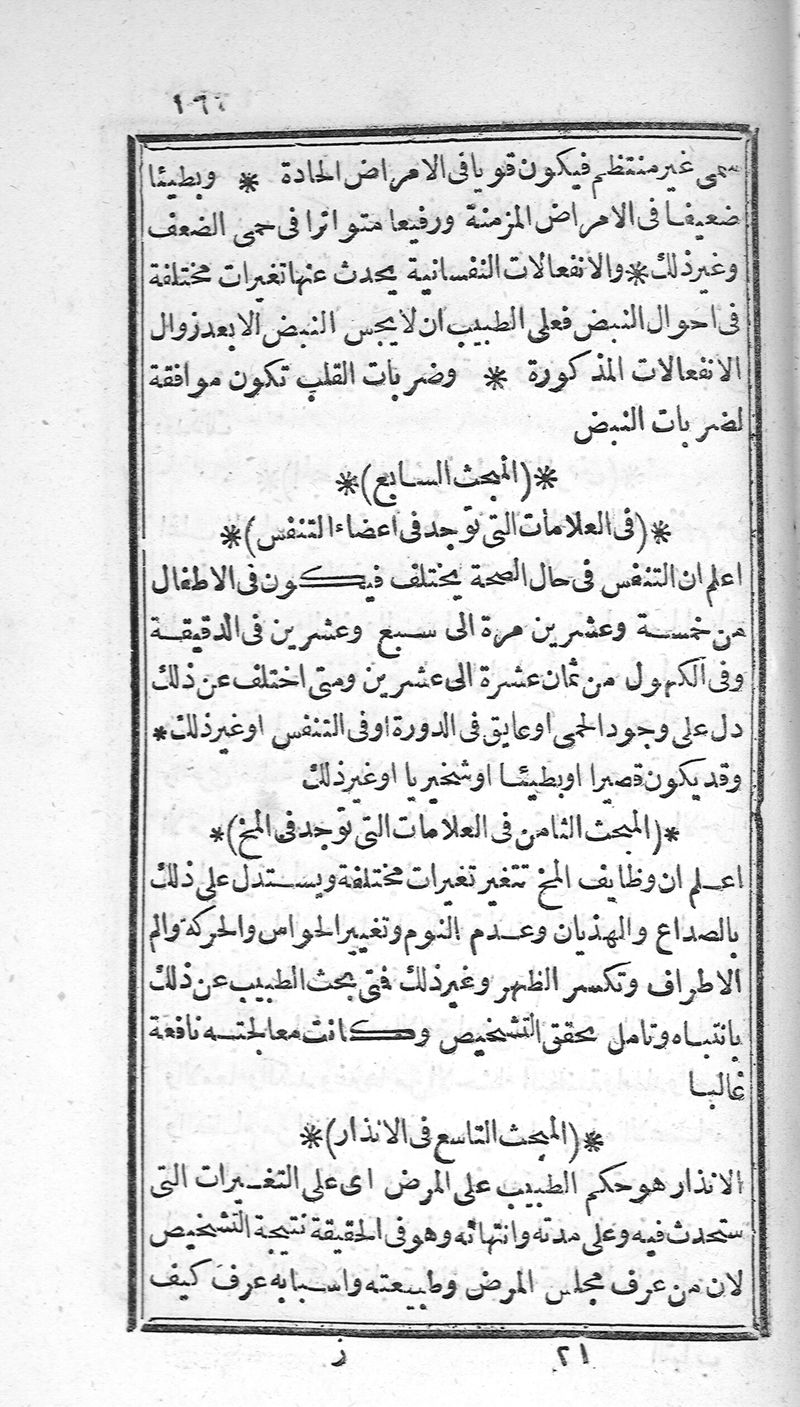 سمى غير منتظم فيكون قويا فى الامراض الحادة * وبطيئا
ضعيفا فى الامراض المزمنة ورفيعا متواترا فى حمى الضعف
وغير ذلك * والانفعالات النفسانية يحدث عنها تغيرات مختلفة
فى احوال النبض فعلى الطبيب ان لا يجس النبض الا بعد زوال
الانفعالات المذكورة * وضربات القلب تكون موافقة
لضربات النبض
*(المبحث السابع)*
*(فى العلامات التى توجد فى اعضاء التنفس)*
اعلم ان التنفس فى حال الصحة يختلف فيكون فى الاطفال
من خمسة وعشرين مرة الى سبع وعشرين فى الدقيقة
وفى الكهول من ثمان عشرة الى عشرين ومتى اختلف عن ذلك
دل على وجود الحمى او عايق فى الدورة او فى التنفس او غير ذلك *
وقد يكون قصيرا او بطيئا او شخيريا او غير ذلك
*(المبحث الثامن فى العلامات التى توجد فى المخ)*
اعلم ان وظايف المخ تتغير تغيرات مختلفة ويستدل على ذلك
بالصداع والهذيان وعدم النوم وتغيير الحواس والحركة والم
الاطراف وتكسر الظهر وغير ذلك فتى بحث الطبيب عن ذلك
بانتباه وتامل يحقق التشخيص وكانت معالجته نافعة
غالبا
*(المبحث التاسع فى الانذار)*
الانذار هو حكم الطبيب على المرض اى على التغيرات التى
ستحدث فيه وعلى مدته وانتهائه وهو فى الحقيقة نتيجة التشخيص
لان من عرف مجلس المرض وطبيعته واسبابه عرف كيف
٢١ ز